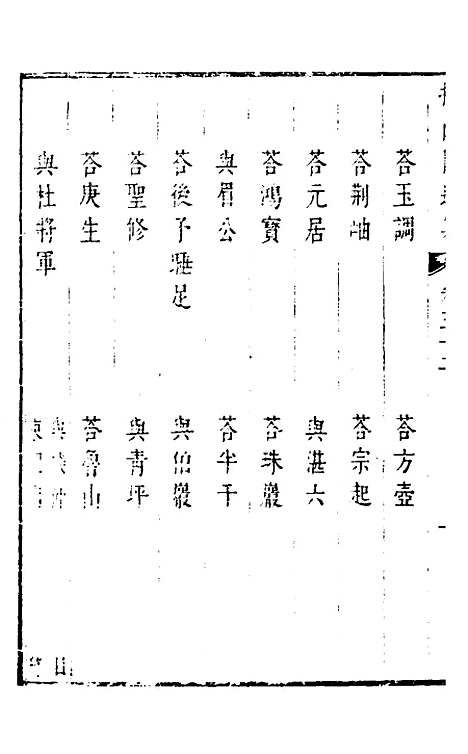 荅玉調
荅方壺
荅荆岫
荅宗起
荅元居
與湛六
荅鴻寳
荅珠巖
與眉公
荅半千
荅後予騅足
與伯巖
荅聖修
與青坪
荅庚生
荅魯山
與杜將軍